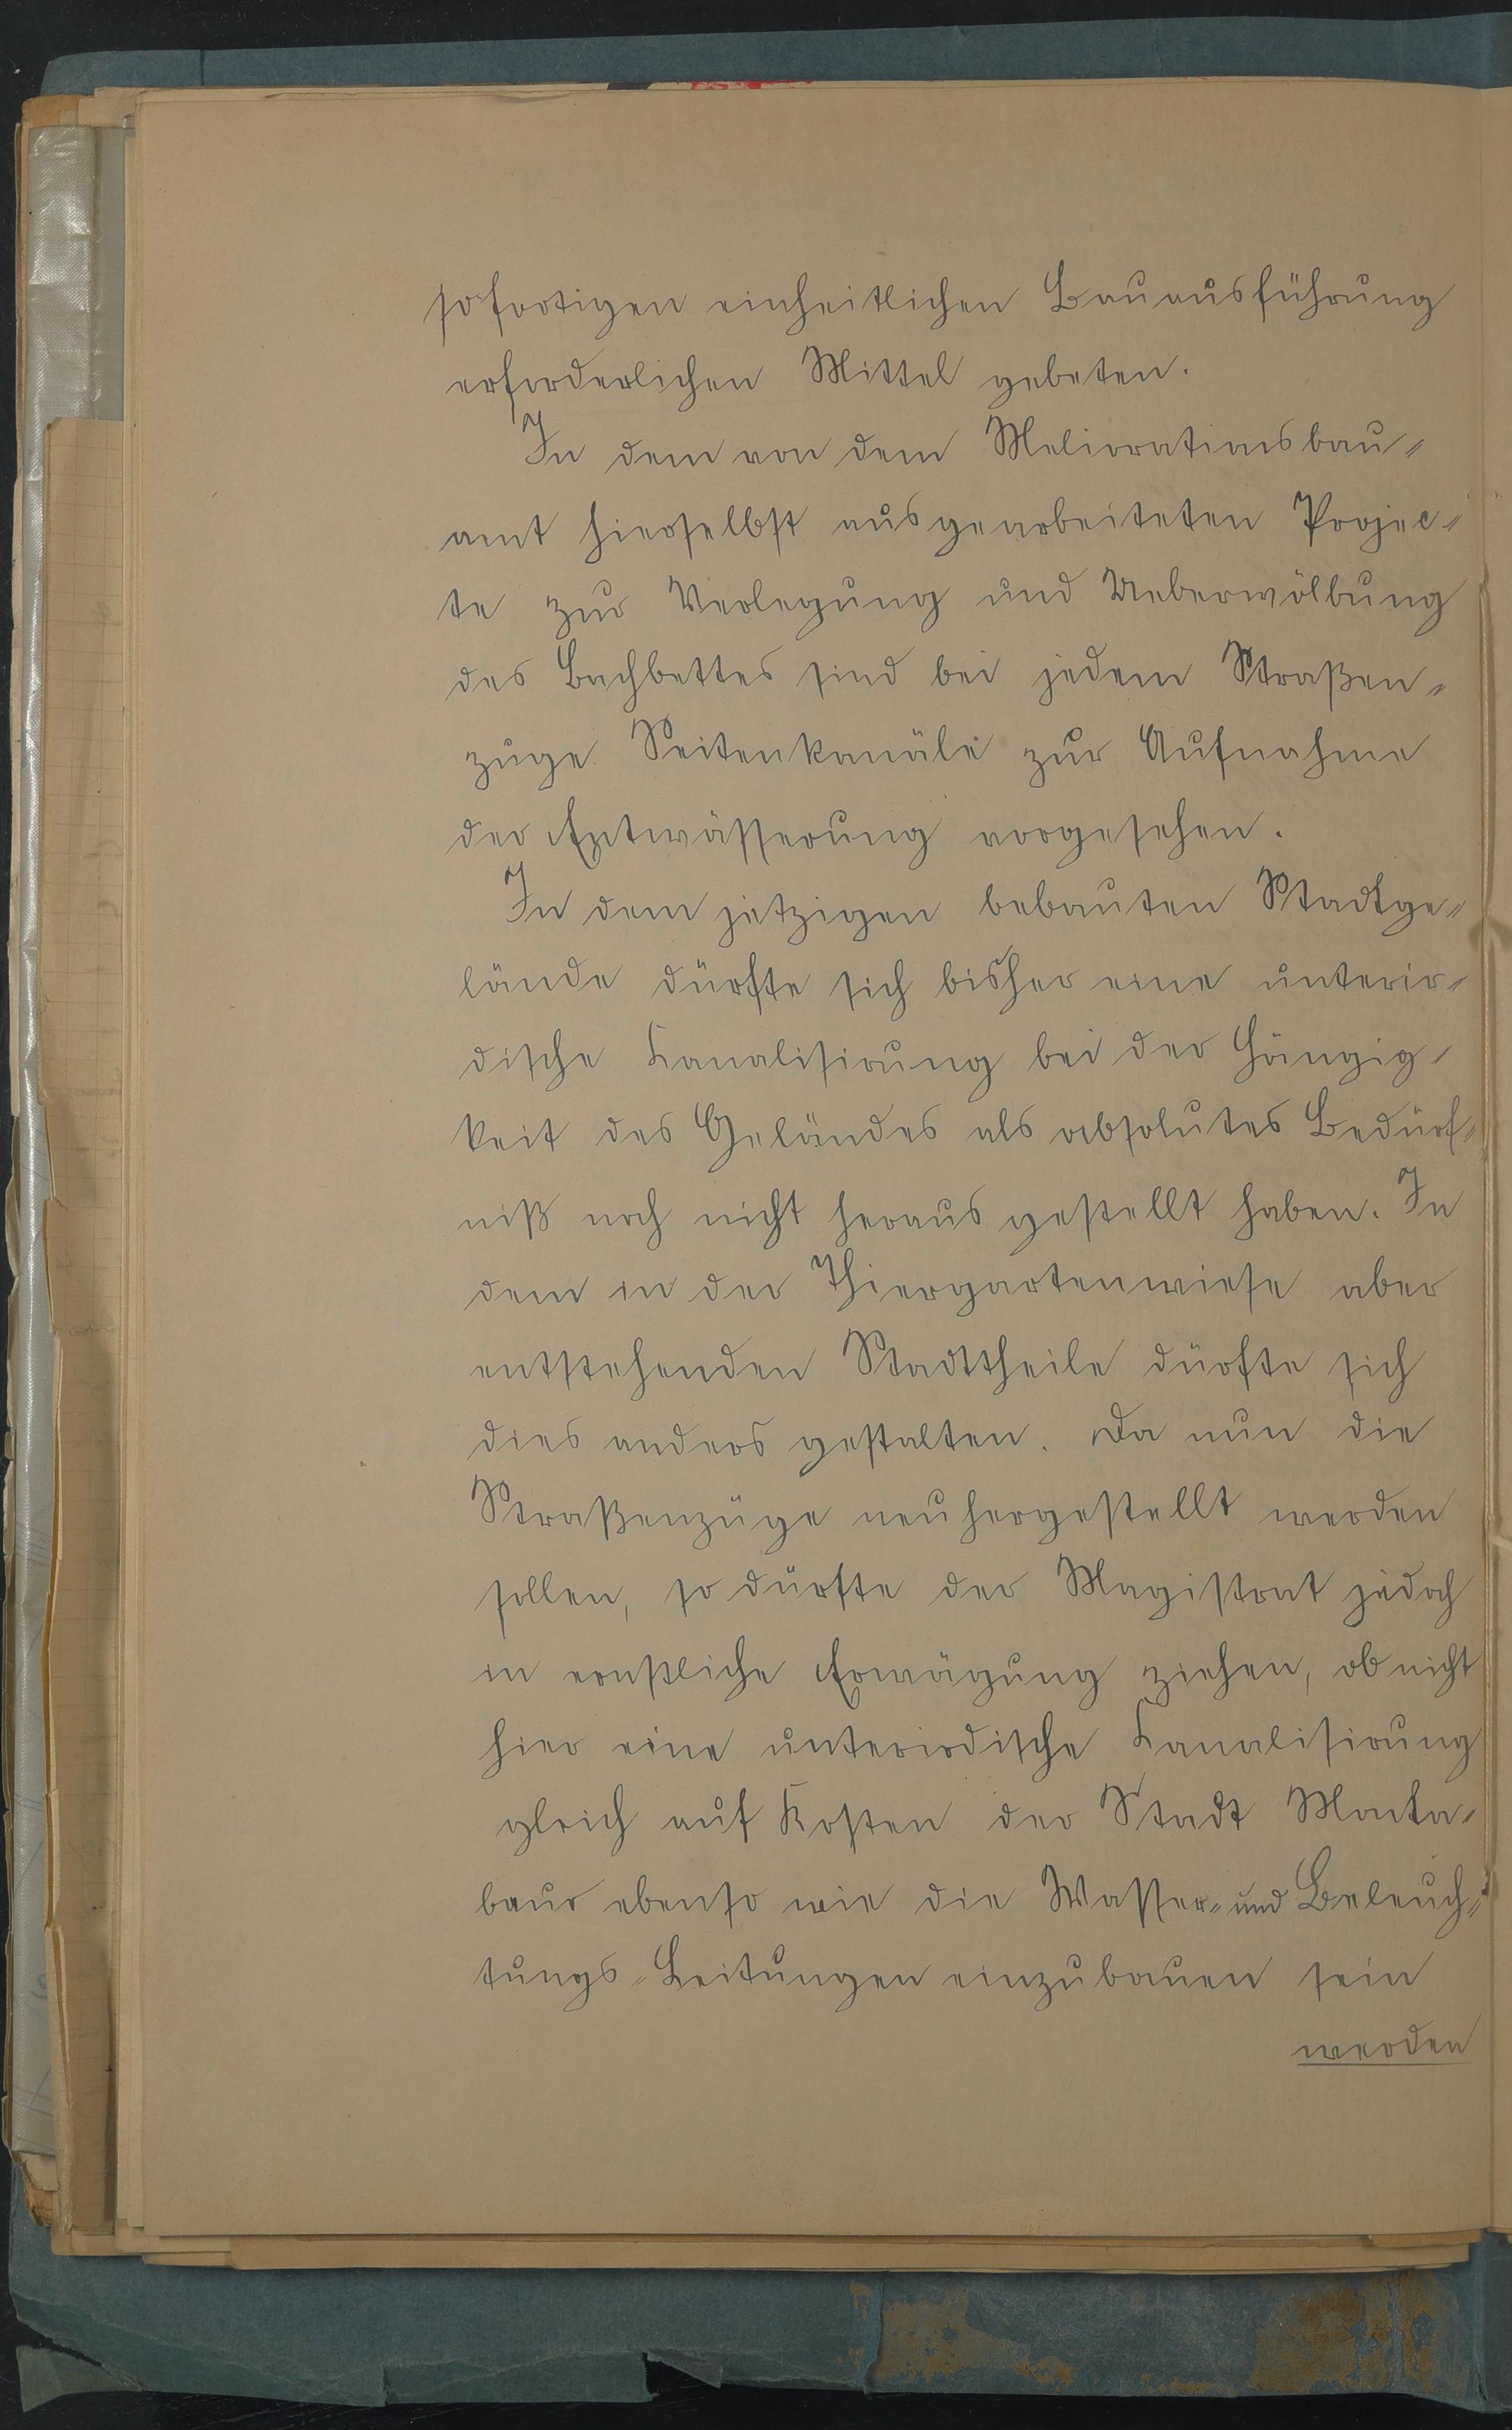 sofortigen einheitlichen Bauausführung
erforderlichen Mittel gebeten.
In dem von dem Meliorationsbau-
amt hierselbst ausgearbeiteten Projec-
te zur Verlegung und Ueberwölbung
des Bachbettes sind bei jedem Straßen-
zuge Seitenkanäle zur Aufnahme
der Entwässerung vorgesehen.
In dem jetzigen bebauten Stadtge-
lände dürfte sich bisher eine unterir-
dische Kanalisirung bei der Hängig-
keit des Geländes als absolutes Bedürf-
niß noch nicht herausgestellt haben. In
dem in der Thiergartenwiese aber
entstehenden Stadttheile dürfte sich
dies anders gestalten. Da nun die
Straßenzüge neuhergestellt werden
sollen, so dürfte der Magistrat jedoch
in ernstliche Erwägung ziehen, ob nicht
hier eine unterirdische Kanalisirung
gleich auf Kosten der Stadt Monta-
baur ebenso wie die Wasser- und Beleuch-
tungs-Leitungen einzubauen sein
werden